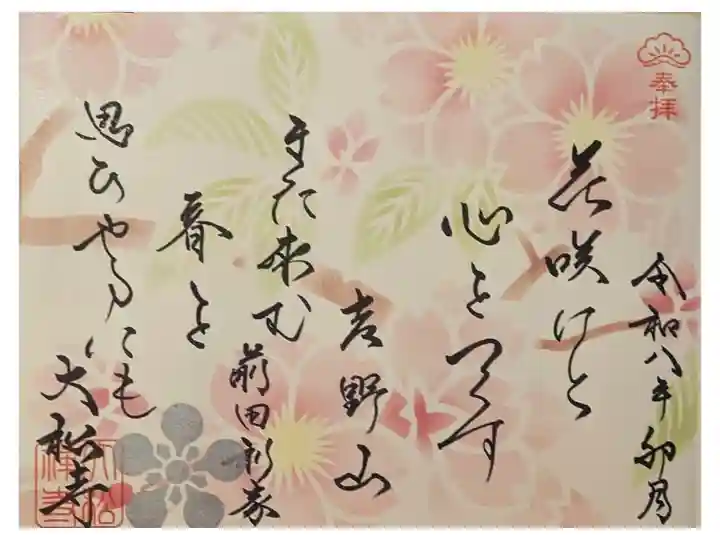 奉拝
令和八年卯月
花咲けと
心をつくす
吉野山
また来む
春を
思ひやるにも
前田利家
大松寺